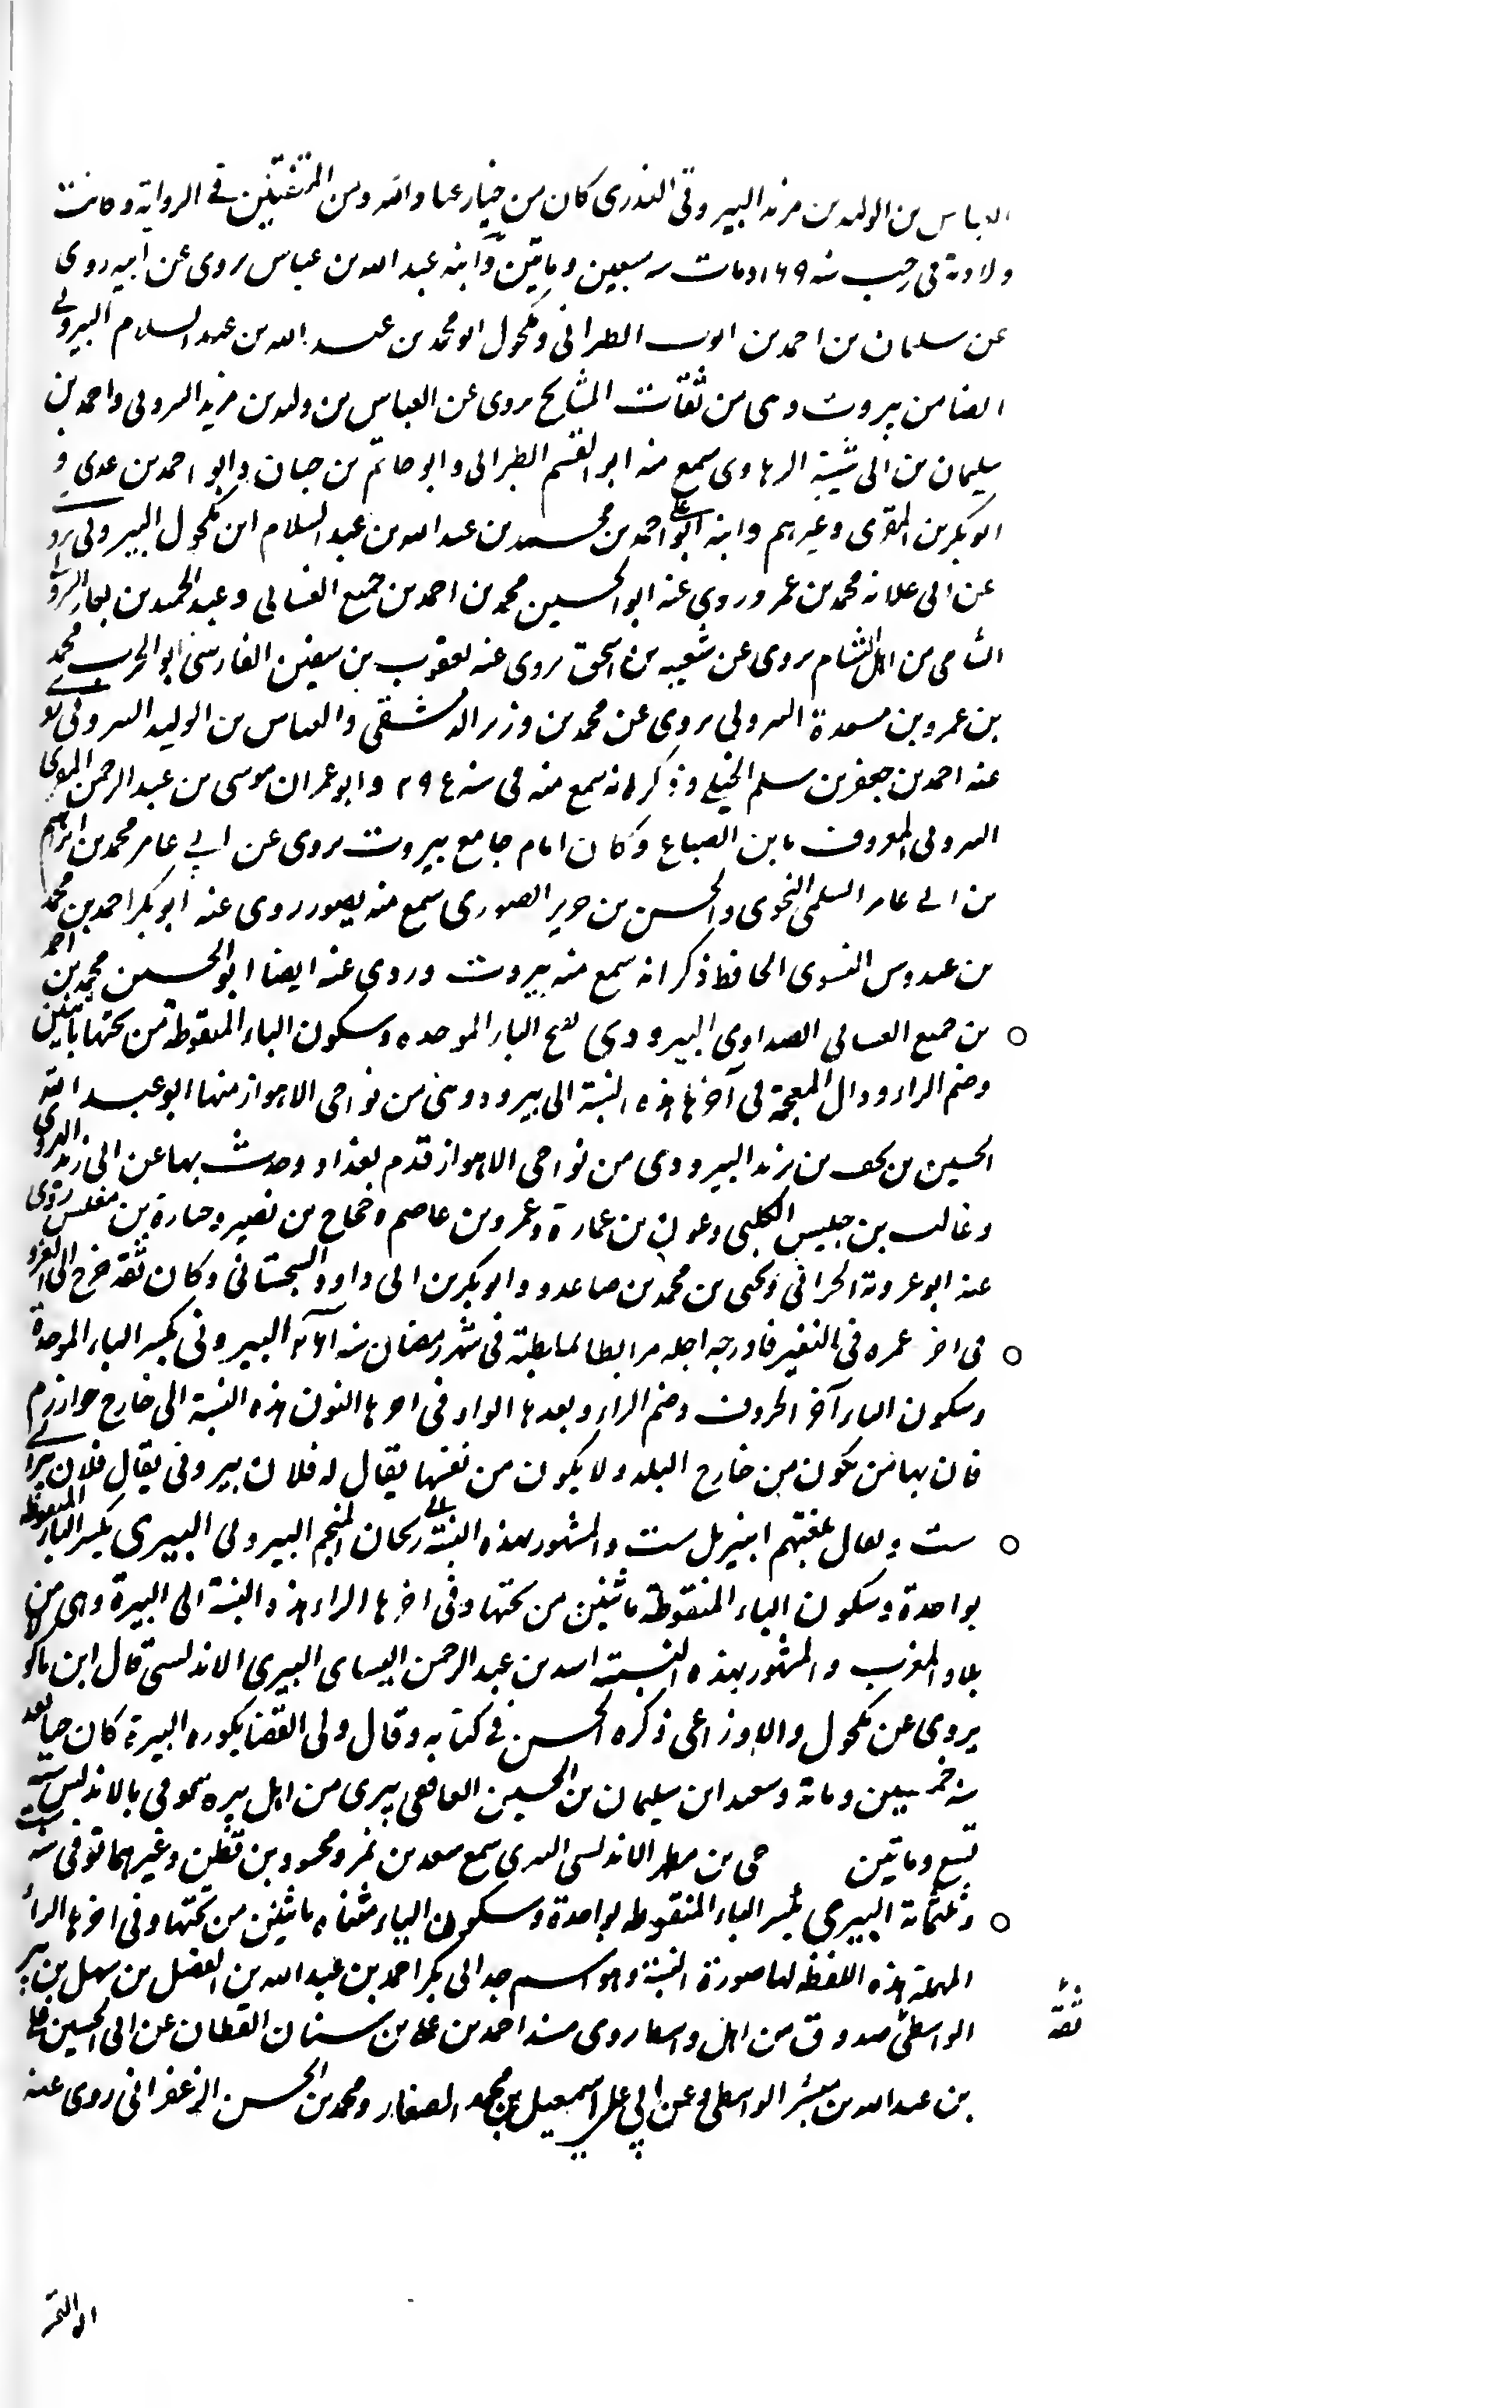 العباس بن الوليد بن مزيد البيروتي العذري كان من خيار عباد الله ومن المتقنين في الرواية وكانت
ولادته في رجب سنة ١٦٩ ومات سنة سبعين وماتين وابنه عبد الله بن عباس يروي عن ابيه روى
عن سليمان بن احمد بن ايوب الطبراني ومكحول ابو محمد بن عبد الله بن عبد السلام البيروتي
ايضا من بيروت وهي من ثقات المشايخ يروي عن العباس بن وليد بن مزيد البيروتي واحمد بن
سليمان بن ابي شيبة الرهاوي سمع منه ابو القسم الطبراني وابو حاتم بن حبان وابو احمد بن عدي و
ابو بكر بن المقرى وغيرهم وابنه ابو علي احمد بن محمد بن عبد الله بن عبد السلام ابن مكحول البيروتي يرو
عن ابي علاثة محمد بن عمر وروي عنه ابو الحسين محمد بن احمد بن جميع الغساني وعبد الحميد بن بكار البيروتي
الشامي من اهل الشام يروي عن شعيب بن اسحق يروي عنه يعقوب بن سفين الفارسي ابو الحرب محمد
بن عمرو بن مسعدة البيروتي يروي عن محمد بن وزير الدمشقي والعباس بن الوليد البيروتي يرو
عنه احمد بن جعفر بن سلم الختلي وذكر انه سمع منه في سنة ٢٩٤ وابو عمران موسى بن عبد الرحمن المقري
البيروتي المعروف بابن الصباغ وكان امام جامع بيروت يروي عن ابي عامر محمد بن ابراهيم
بن ابي عامر السلمي النحوي والحسن بن جرير الصوري سمع منه بصور روى عنه ابو بكر احمد بن محمد
بن عبدوس النسوي الحافظ ذكر انه سمع منه بيروت وروي عنه ايضا ابو الحسين محمد بن احمد
بن جميع الغساني الصيداوي البيروذي بفتح الباء الموحده وسكون الياء المنقوطة من تحتها باثنتين
وضم الراء وذال المعجمة في آخرها هذه النسبة الى بيروذ وهي من نواحي الاهواز منها ابو عبد الله
الحسين بن بحر بن يزيد البيروذي من نواحي الاهواز قدم بغداد وحدث بها عن ابي زيد الهروي
وغالب بن جليس الكلبي وعون بن عمارة وعمرو بن عاصم وحجاج بن نصير وجبارة بن مغلس روى
عنه ابو عروبة الحراني ويحيى بن محمد بن صاعد وابو بكر بن ابي داود السجستاني وكان ثقة خرج الى الغزو
في اخر عمره في النفير فادركه اجله مرابطا بملطية في شهر رمضان سنة ٢٦١ البيروني بكسر الباء الموحدة
وسكون الياء آخر الحروف وضم الراء وبعدها الواو في اخرها النون هذه النسبة الى خارج خوارزم
فان بها من يكون من خارج البلد ولا يكون من نفسها يقال له فلان بيروني يقال فلان بيرا
ست ويقال بلغتهم انبيژك ست والمشهور بهذه النسبة ابو ريحان المنجم البيروني البيري بكسر الباء المنقوطه
بواحدة وسكون الياء المنقوطة باثنتين من تحتها وفي اخرها الراء هذه النسبة الى البيرة وهي من
بلاد المغرب والمشهور بهذه النسبة اسد بن عبد الرحمن السباي البيري الاندلسي قال ابن ماكولا
يروي عن مكحول والاوزاعي ذكره الحسن في كتابه وقال ولي القضا بكورة البيرة كان حيا بعد
سنة خمسين ومائة وسعيد ابن سليمان بن الحسين الغافقي بيري من اهل بيره توفي بالاندلس سنة
تسع وماتين حي بن مطهر الاندلسي البيري سمع سعد بن نمر ومحمود بن قطن وغيرهما توفي سنة ست
وثلثمائة البيري بكسر الباء المنقوطه بواحدة وسكون الياء مثناه باثنتين من تحتها وفي اخرها الراء
المهملة هذه اللفظه لها صورة النسبة وهو اسم جد ابي بكر احمد بن عبد الله بن الفضل بن سهل بن بير
الواسطي صدوق من اهل واسط روى مسند احمد بن سنان القطان عن ابي الحسين علي
بن عبد الله بن مبشر الواسطي وعن ابي علي اسمعيل بن محمد الصفار ومحمد بن الحسن الزعفراني روى عنه
ثقة